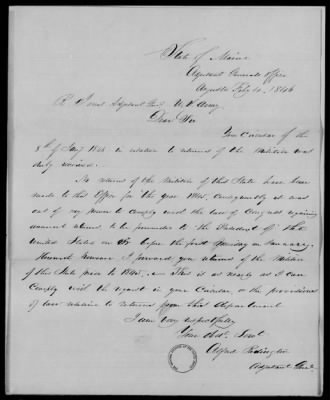 State of Maine
Adjutant Generals Office
Augusta Feby 10, 1846
R. Jones Adjutant Genl. U.S. Army
Dear Sir
Your Circular of the
8th of Jany 1846 in relation to returns of the Militia was
duly received.
No returns of the Militia of this State have been
made to this Office for the year 1845, Consequently it was
out of my power to comply with the law of Congress requiring
annual returns to be forwarded to the President of the
United States on or before the first Monday in January.
I forward you returns of the Militia
of this State prior to 1845. This is as nearly as I can
comply with the request in your Circular, or the provisions
of law relative to returns from this department
I am very respectfully
Your Obdt. Servt
Alfred Redington
Adjutant Genl.